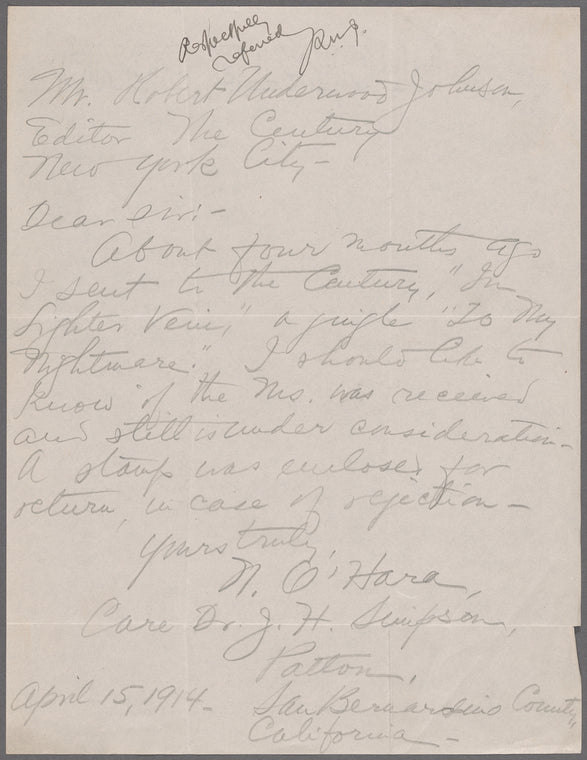 Respectfully
referred R.U.J.
Mr. Robert Underwood Johnson,
Editor The Century
New York City—
Dear Sir:—
About four months ago
I sent to the Century, "In
Lighter Vein," a jingle "To My
Nightmare." I should like to
know if the Ms. was received
and still is under consideration—
A stamp was enclosed for
return, in case of rejection—
Yours truly,
N. O'Hara,
Care Dr. J. H. Simpson,
Patton,
April 15, 1914— San Bernardino County,
California—